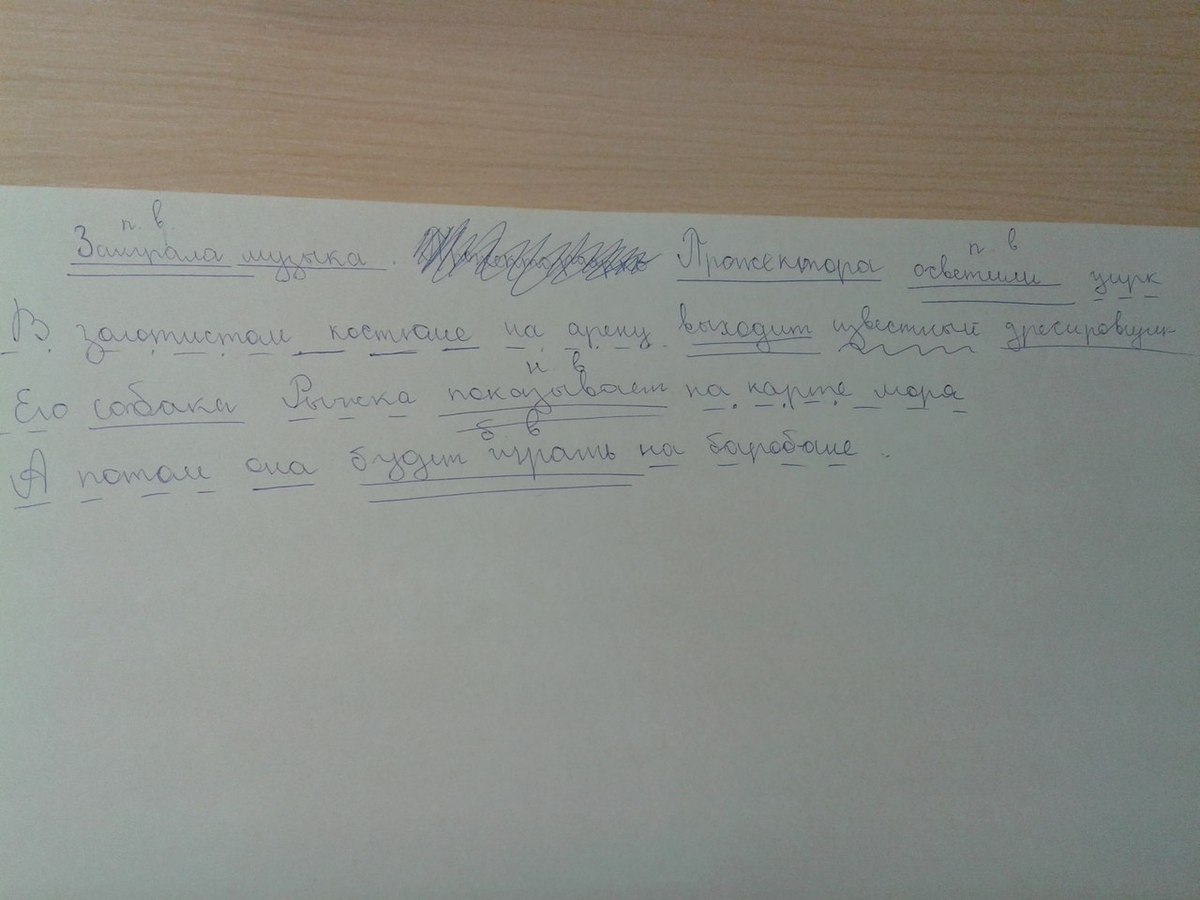 п. в.
Заиграла музыка. Прожектора осветили цирк
п. в
В золотистом костюме на арену выходит известный дресировщик
н в
Его собака Рыжка показывает на карте моря
б в
А потом она будет играть на барабане.